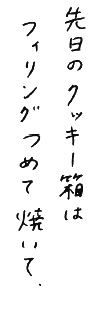 先日のクッキー箱は
フィリングつめて焼いて、